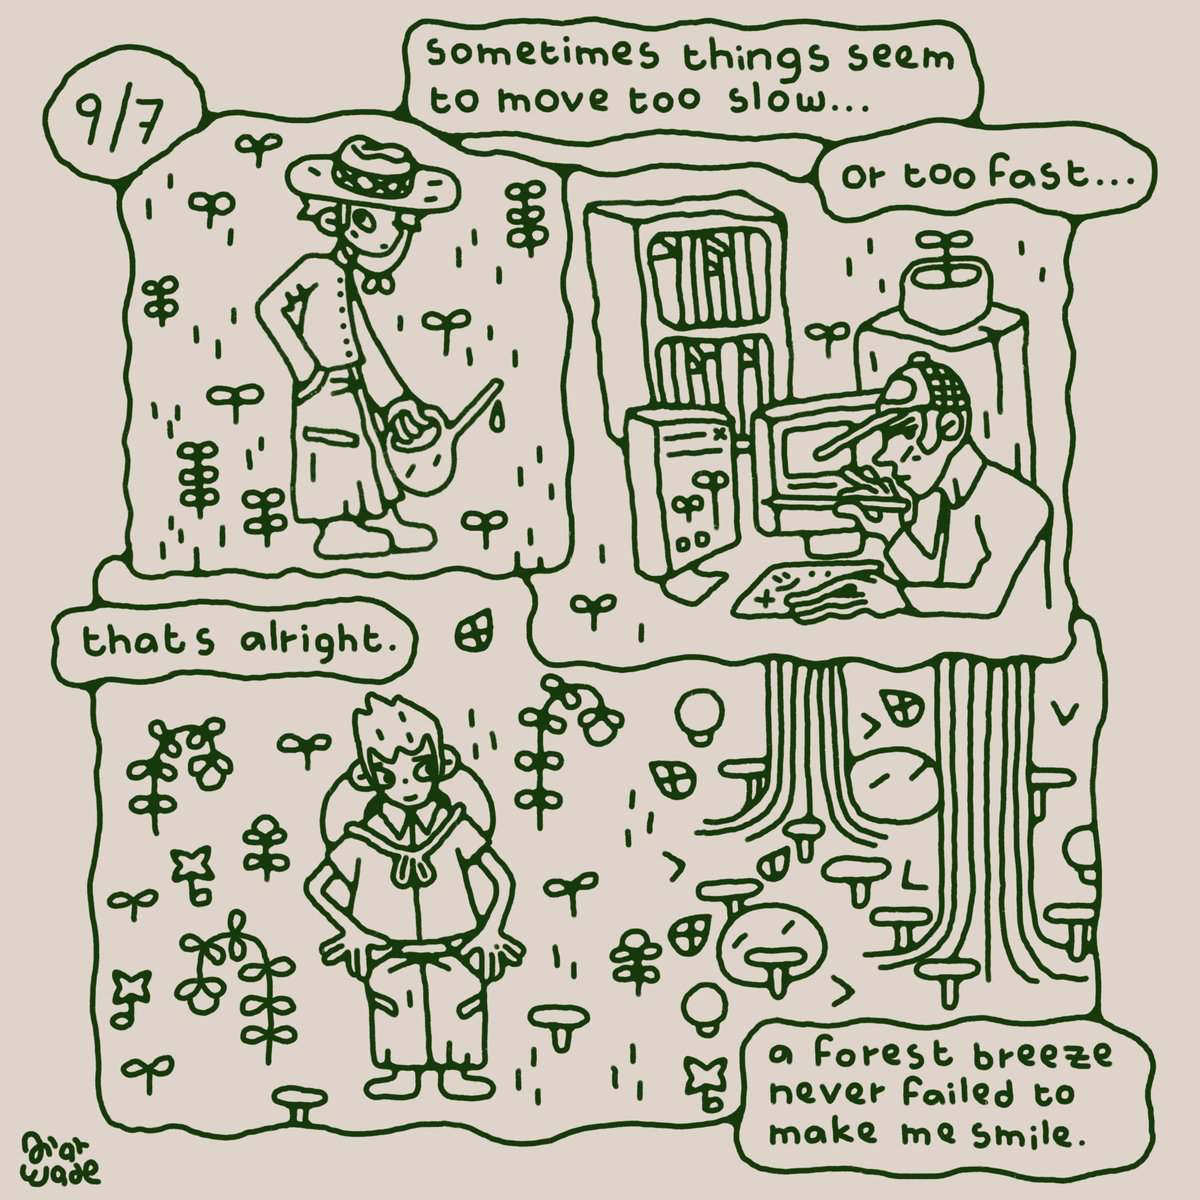 9/7
sometimes things seem
to move too slow...
or too fast...
thats alright.
a forest breeze
never failed to
make me smile.
wade